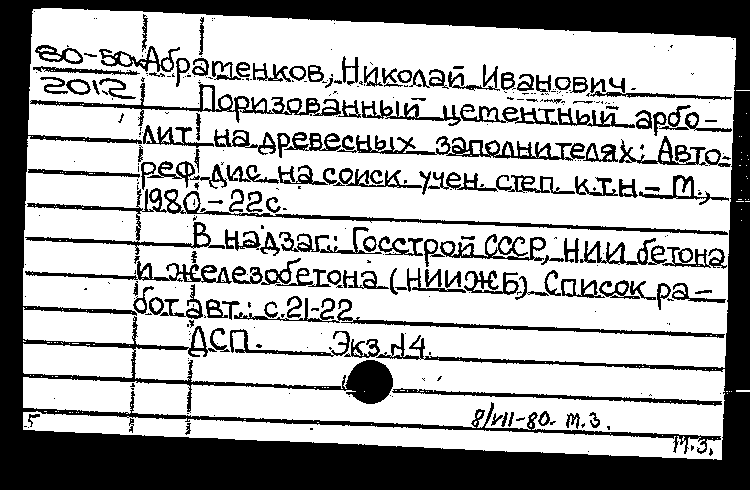 80-50к Абратенков, Николай Иванович.
2012 Поризованный цементный арбо-
лит на древесных заполнителях: Авто-
реф. дис. на соиск. учен. степ. к.т.н. – М.,
1980. – 22с.
В надзаг.: Госстрой СССР, НИИ бетона
и железобетона (НИИЖБ). Список ра-
бот авт.: с.21-22.
ДСП. Экз. №4.
8/VII-80. М.З.
5 М.З.